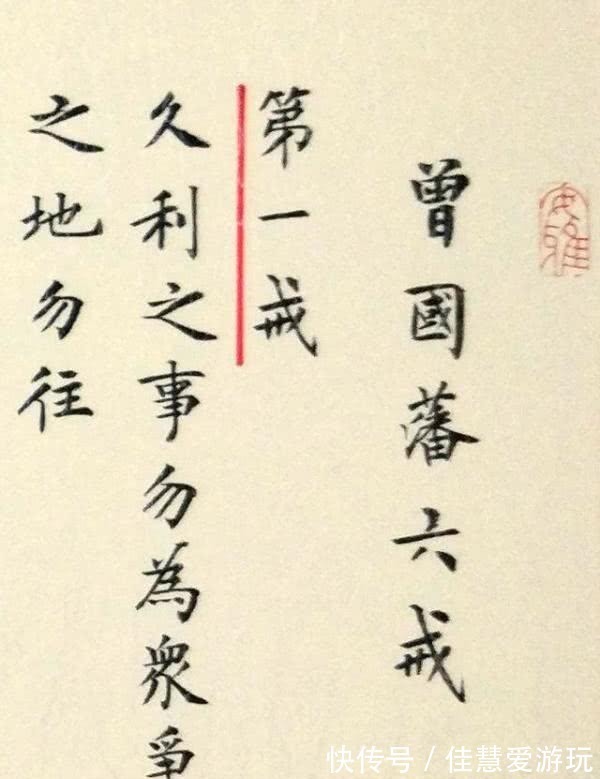 安雅
曾國藩六戒
第一戒
久利之事勿為衆爭
之地勿往
快传号/佳慧爱游玩